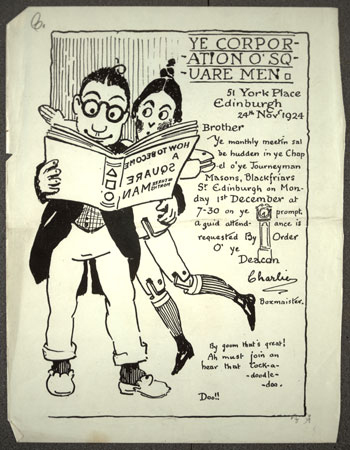 6.
YE CORPOR-
-ATION O' SQ-
-UARE MEN
51 York Place
Edinburgh
24th Nov 1924
Brother
Ye monthly meetin sal
be hudden in ye Chap
el o'ye Journeyman
Masons, Blackfriars
St Edinburgh on Mon-
day 1st December at
7-30 on ye prompt.
a guid attend- ance is
requested By Order
O' ye
Deacon
Charlie
Boxmaister.
HOW TO BECOME
A
SQUARE
MAN
By goom that's great!
Ah must join an
hear that Cock-a-
-doodle-
-doo.
Doo!!